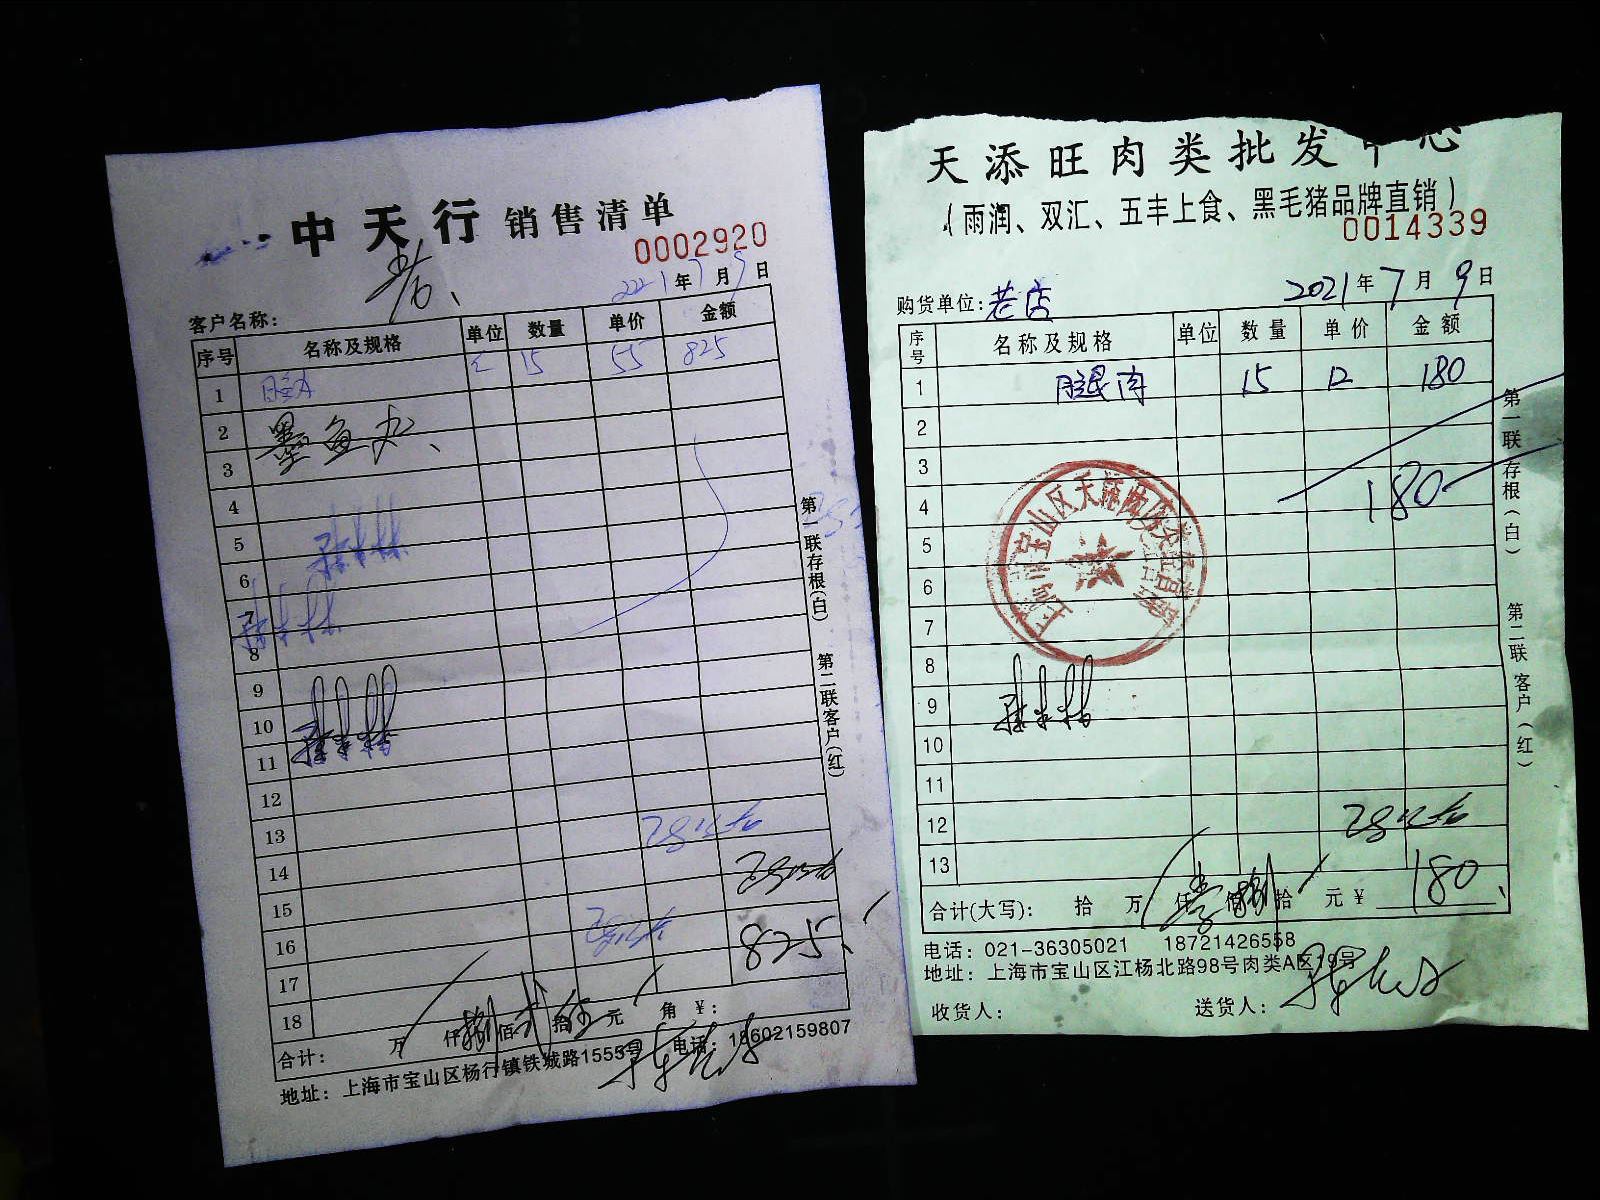 中天行 销售清单
0002920
2021年7月9日
客户名称：
老
序号 名称及规格 单位 数量 单价 金额
1 15 55 825
2 墨鱼丸
3
4
5
6
7
8
9
10
11
12
13
14
15
16 825
17
18
合计： 万 仟 捌 佰 贰 拾 伍 元 角 ¥：
地址：上海市宝山区杨行镇铁城路1555号 电话：18602159807
第一联存根（白） 第二联客户（红）
天添旺肉类批发中心
（雨润、双汇、五丰上食、黑毛猪品牌直销）
0014339
购货单位：老店 2021年7月9日
序号 名称及规格 单位 数量 单价 金额
1 腿肉 15 12 180
2
3
4 180
5
6
7
8
9
10
11
12
13
合计(大写)： 拾 万 仟 壹 佰 捌 拾 元 ¥ 180
电话：021-36305021 18721426558
地址：上海市宝山区江杨北路98号肉类A区19号
收货人： 送货人：
第一联 存根（白） 第二联 客户（红）